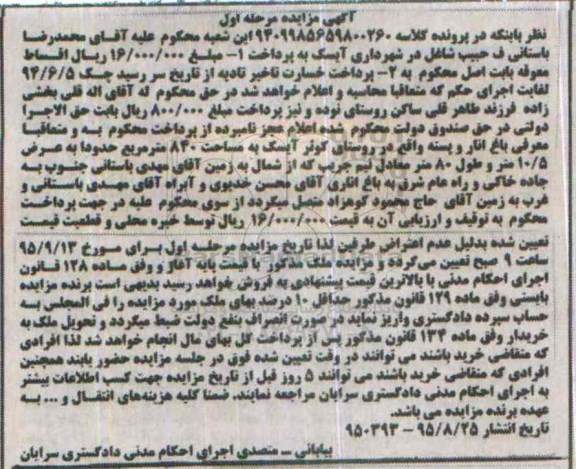 آگهی مزایده مرحله اول
نظر باینکه در پرونده کلاسه ۹۴۰۹۹۸۵۶۵۹۸۰۰۲۶۰ این شعبه محکوم علیه آقای محمدرضا
باستانی ف حبیب شاغل در شهرداری آیسک به پرداخت ۱- مبلغ ۱۶/۰۰۰/۰۰۰ ریال اقساط
معوقه بابت اصل محکوم به ۲- پرداخت خسارت تاخیر تادیه از تاریخ سر رسید چک ۹۴/۶/۵
لغایت اجرای حکم که متعاقبا محاسبه و اعلام خواهد شد در حق محکوم له آقای اله قلی بخشی
زاده فرزند طاهر قلی ساکن روستای نوده و نیز پرداخت مبلغ ۸۰۰/۰۰۰ ریال بابت حق الاجرا
دولتی در حق صندوق دولت محکوم شده اعلام عجز نامبرده از پرداخت محکوم به و متعاقبا
معرفی باغ انار و پسته واقع در روستای کوثر آیسک به مساحت ۸۴۰ مترمربع حدودا به عرض
۱۰/۵ متر و طول ۸۰ متر معادل نیم جریب که از شمال به زمین آقای مهدی باستانی جنوب به
جاده خاکی و راه عام شرق به باغ اناری آقای محسن خدیوی و آبراه آقای مهدی باستانی و
غرب به زمین آقای حاج محمود گوهرزاد متصل میگردد از سوی محکوم علیه در جهت پرداخت
محکوم به توقیف و ارزیابی آن به قیمت ۱۶/۰۰۰/۰۰۰ ریال توسط خبره محلی و قطعیت قیمت
تعیین شده بدلیل عدم اعتراض طرفین لذا تاریخ مزایده مرحله اول برای مورخ ۹۵/۹/۱۳
ساعت ۹ صبح تعیین می‌گردد و مزایده ملک مذکور با قیمت پایه آغاز و وفق ماده ۱۲۸ قانون
اجرای احکام مدنی با بالاترین قیمت پیشنهادی به فروش خواهد رسید بدیهی است برنده مزایده
بایستی وفق ماده ۱۲۹ قانون مذکور حداقل ۱۰ درصد بهای ملک مورد مزایده را فی المجلس به
حساب سپرده دادگستری واریز نماید در صورت انصراف بنفع دولت ضبط میگردد و تحویل ملک به
خریدار وفق ماده ۱۳۴ قانون مذکور پس از پرداخت کل بهای مال انجام خواهد شد لذا افرادی
که متقاضی خرید باشند می توانند در وقت تعیین شده فوق در جلسه مزایده حضور یابند همچنین
افرادی که متقاضی خرید باشند می توانند ۵ روز قبل از تاریخ مزایده جهت کسب اطلاعات بیشتر
به اجرای احکام مدنی دادگستری سرایان مراجعه نمایند. ضمنا کلیه هزینه‌های انتقال و ... به
عهده برنده مزایده می باشد.
تاریخ انتشار ۹۵/۸/۲۵ - ۹۵۰۳۹۳
بیابانی ــ متصدی اجرای احکام مدنی دادگستری سرایان